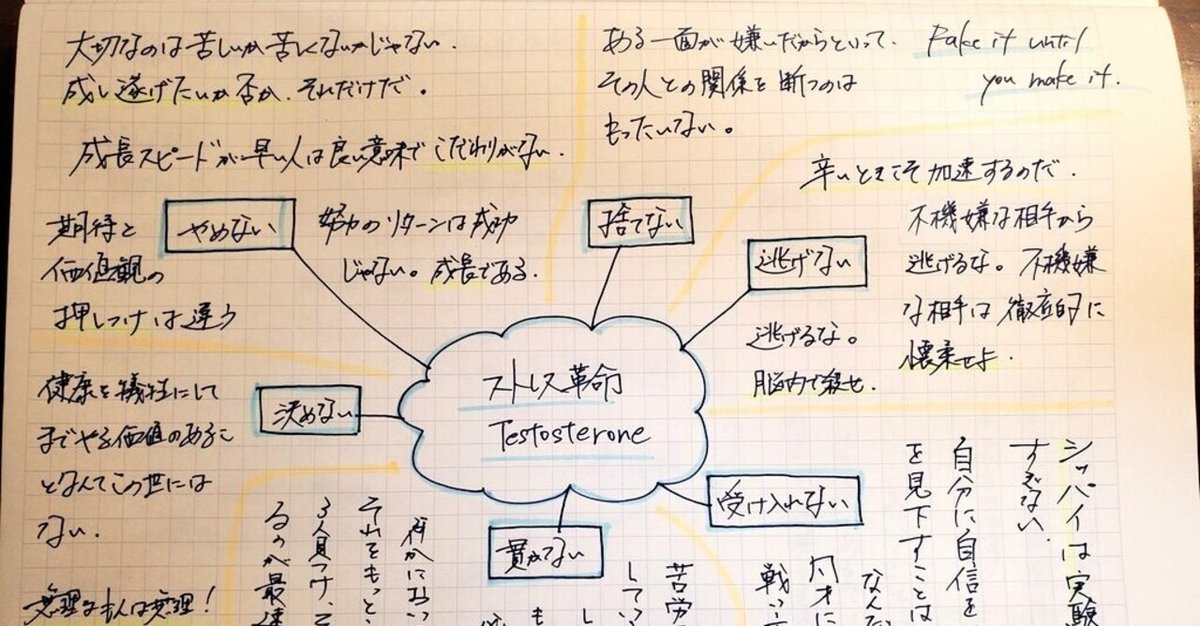 大切なのは苦しいか苦しくないかじゃない.
成し遂げたいか否か.それだけだ。
成長スピードが早い人は良い意味でこだわりがない.
ある一面が嫌いだからといって.
その人との関係を断つのは
もったいない。
Fake it until
you make it.
辛いときこそ加速するのだ.
期待と
価値観の
押しつけは違う
やめない
努力のリターンは成功
じゃない。成長である.
捨てない
逃げない
逃げるな。
脳内で殺せ.
不機嫌な相手から
逃げるな。不機嫌
な相手は徹底的に
懐柔せよ.
ストレス革命
Testosterone
健康を犠牲にして
までやる価値のあるこ
となんてこの世には
ない.
無理なもんは無理!
決めない
貫かない
受け入れない
シッパイは実験
すぎない.
自分に自信を
を見下すことは
なんだ
凡才に
戦い
苦労
してい
し
も
何かにおい
それをもっと
る人見つけ、
るのが最速